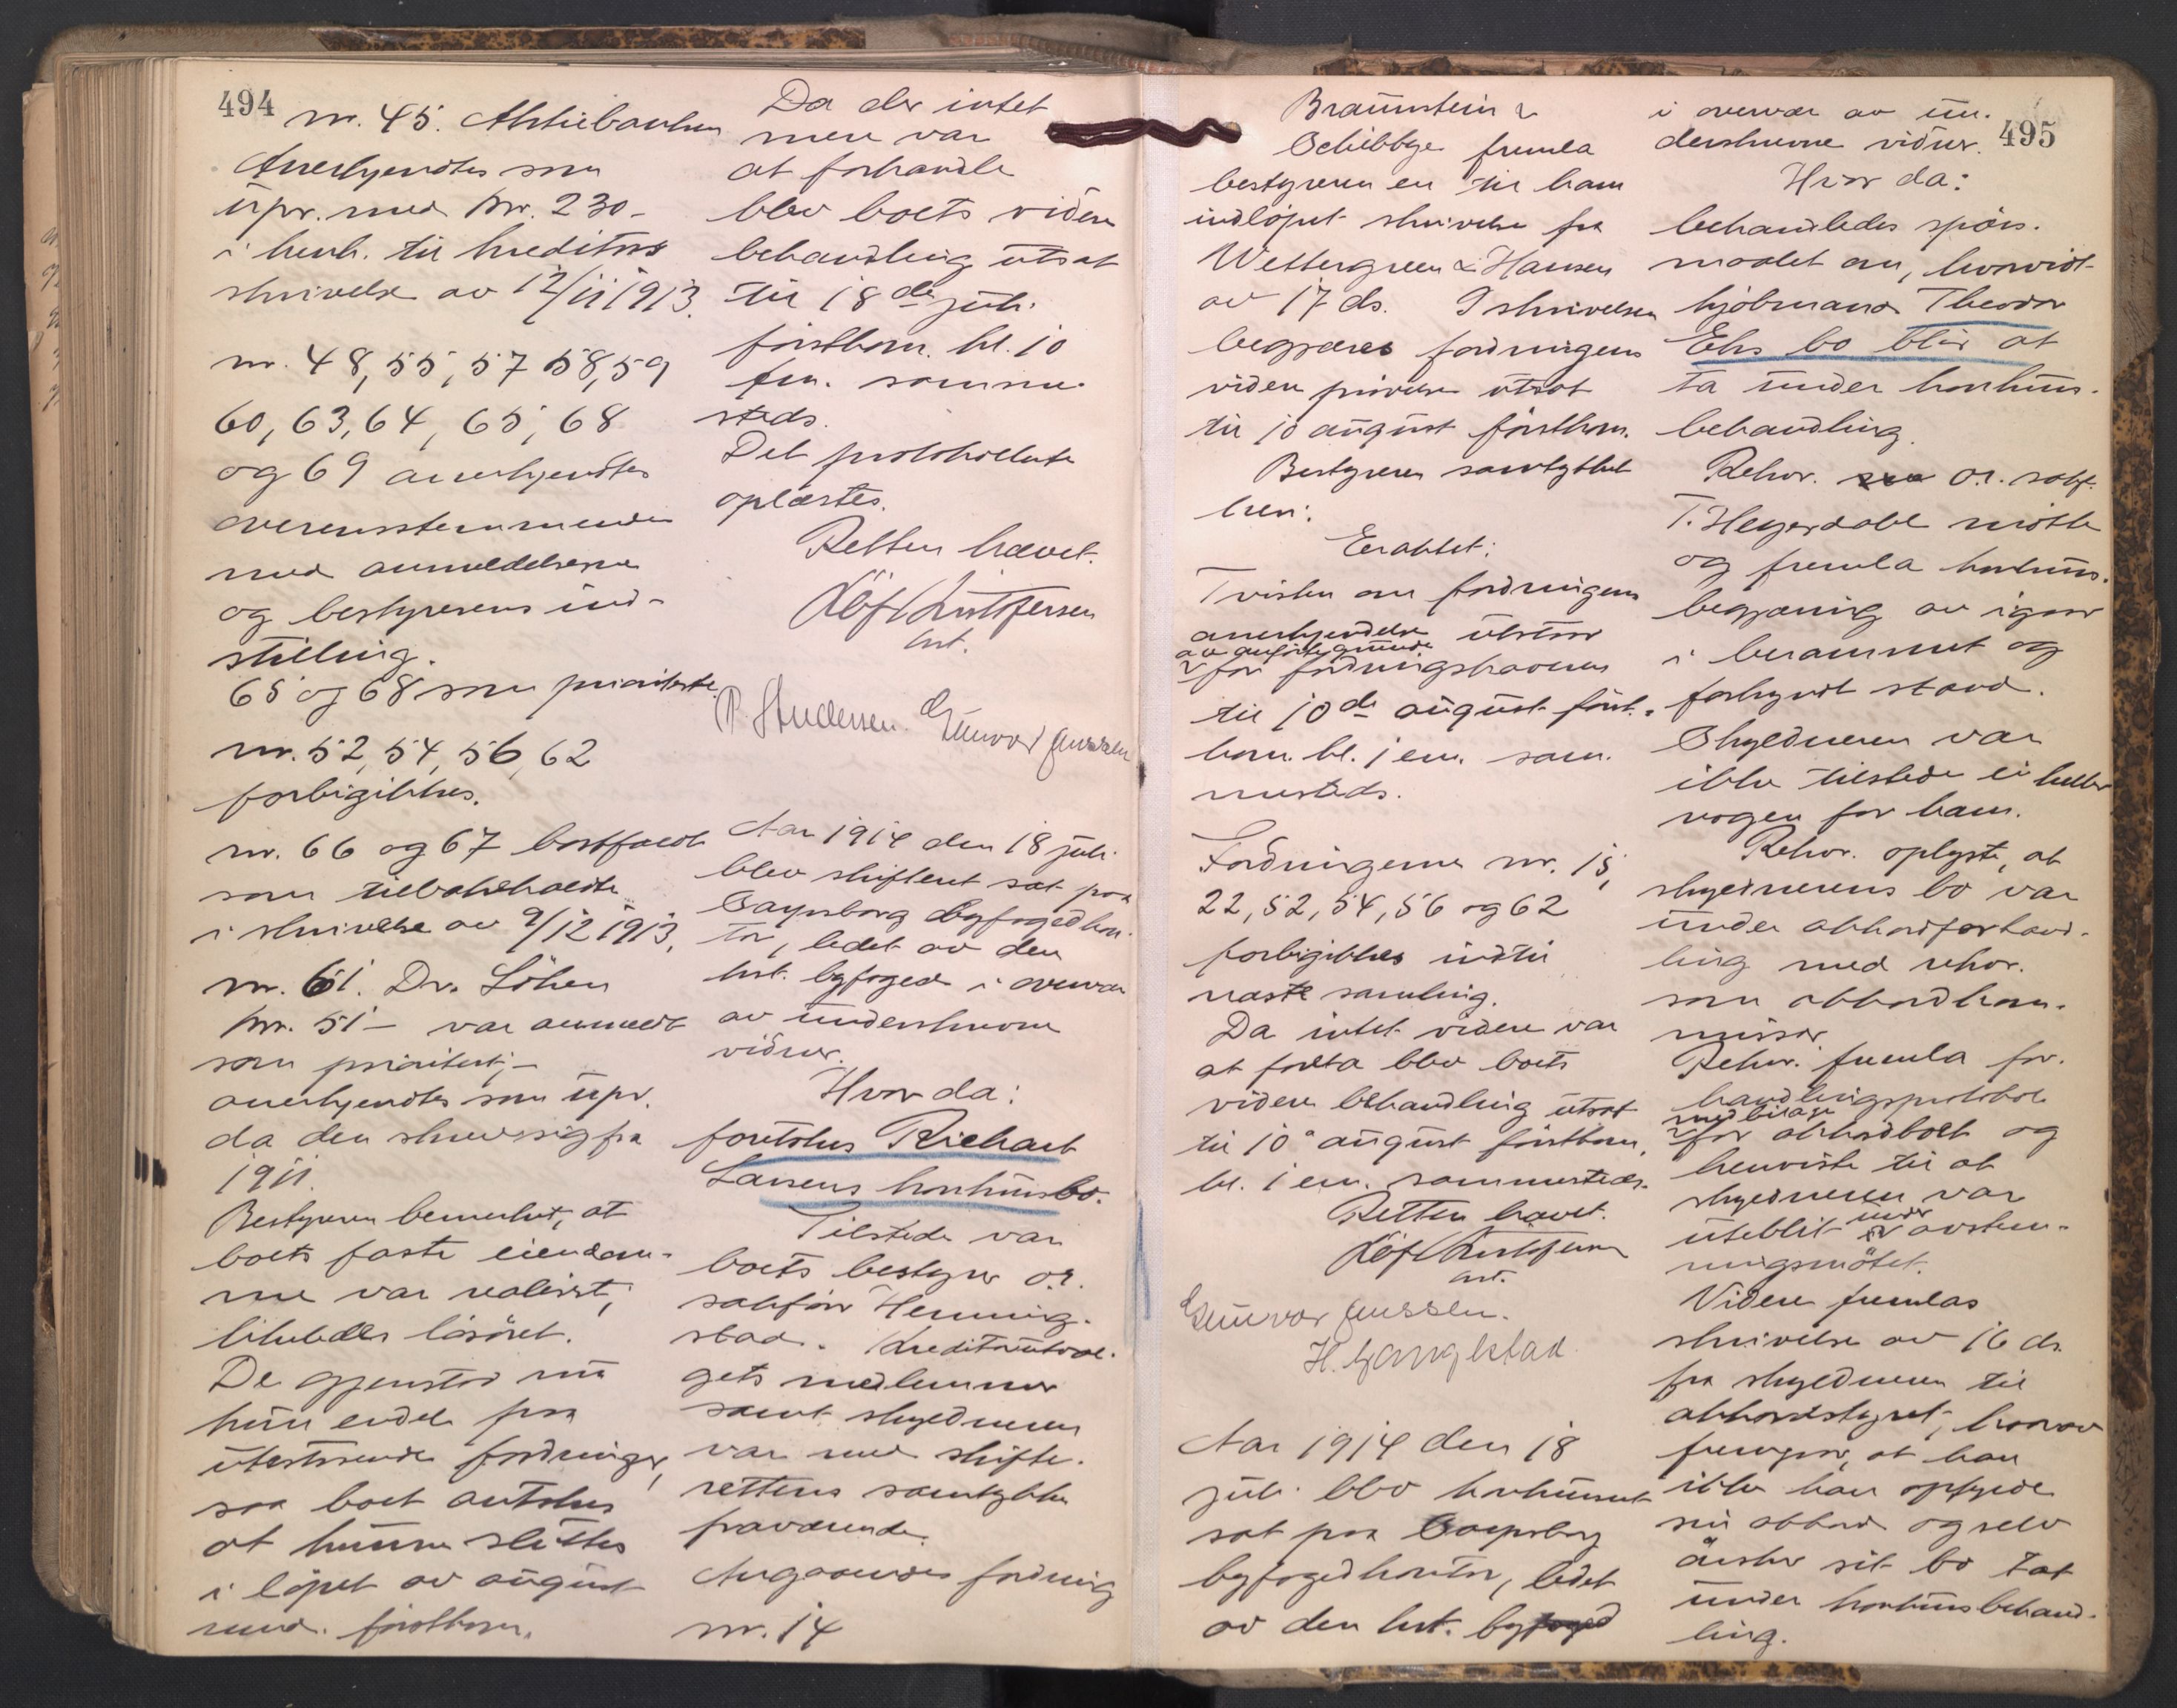 494
nr. 45. Aktiebanken
Anerkjendtes som
upr. med kr. 230 -
i henh. til kreditors
skrivelse av 12/11 1913.
nr. 48, 55, 57 58, 59
60, 63, 64, 65, 68
og 69 anerkjendtes
overensstemmende
med anmeldelserne
og bestyrerens ind-
stilling.
65 og 68 som prioriterte.
nr. 52, 54, 56, 62
forbigikkes.
nr. 66 og 67 bortfaldt
som tilbakekaldte
i skrivelse av 9/12 1913.
nr. 61. Dr. Löken
kr. 51 - var anmeldt
som prioritert; -
anerkjendtes som upr.
da den skrev sig fra
1911.
Bestyreren bemerket, at
boets faste eiendom-
me var realisert;
likeledes lösöret.
De gjenstod nu
kun endel fra
utestaaende fordringer,
saa boet antokes
at kunne sluttes
i löpet av august
mnd. förstkom.
Da der intet
mere var
at forhandle
blev boets videre
behandling utsat
til 18de juli
förstkom. kl. 10
fm. samme-
steds.
Det protokollerte
oplæstes.
Retten hævet.
Löf Kristofersen
kst.
P. Andersen. Gunvor Jenssen
Aar 1914 den 18 juli
blev skifteret sat paa
Sarpsborg byfogedkon-
tor, ledet av den
kst. byfoged i overvær
av underskrevne
vidner.
Hvor da:
foretokes Richart
Larsens konkursbo.
Tilstede var
boets bestyrer o.r.
sakförer Henning-
stad. Kreditorutval-
gets medlemmer
samt skyldneren
var med skifte-
rettens samtykke
fraværende.
Angaaende fordring
nr. 14
Braunstein &
Schibbye fremla
bestyreren en til ham
indlöpet skrivelse fra
Wettergreen & Hansen
av 17 ds. I skrivelsen
begjæres fordringens
videre prövelse utsat
til 10 august förstkom.
Bestyreren samtykket
heri.
Eragtet:
Tvisten om fordringens
anerkjendelse utstaar
av anförte grunde
for fordringshaveren
til 10de august först-
kom. kl. 1 em. sam-
mesteds.
Fordringerne nr. 15,
22, 52, 54, 56 og 62
forbigikkes indtil
næste samling.
Da intet videre var
at foreta blev boets
videre behandling utsat
til 10de august förstkom,
kl. 1 em. sammesteds.
Retten hævet.
Löf Kristofersen
kst.
Gunvor Jenssen.
H. Gangestad.
Aar 1914 den 18
juli blev konkursret
sat paa Sarpsborg
byfogedkontor, ledet
av den kst. byfoged
495
i overvær av un-
derskrevne vidner.
Hvor da:
behandledes spörs-
maalet om, hvorvidt
kjöbmand Theodor
Eks bo blir at
ta under konkurs-
behandling.
Rekvr. o.r. sakf.
T. Heyerdahl mötte
og fremla konkurs-
begjæring av igaar
i berammet og
forkyndt stand.
Skyldneren var
ikke tilstede ei heller
nogen for ham.
Rekvr. oplyste, at
skyldnerens bo var
under akkordforhand-
ling med rekvr.
som akkordkom-
missær.
Rekvr. fremla for-
handlingsprotokol
med bilage
for akkordboet og
henviste til at
skyldneren var
uteblit under avstem-
ningsmötet.
Videre fremlas
skrivelse av 16 ds.
fra skyldneren til
akkordstyret, hvorav
fremgaar, at han
ikke kan opfylde
sin akkord og selv
önsker sit bo tat
under konkursbehand-
ling.